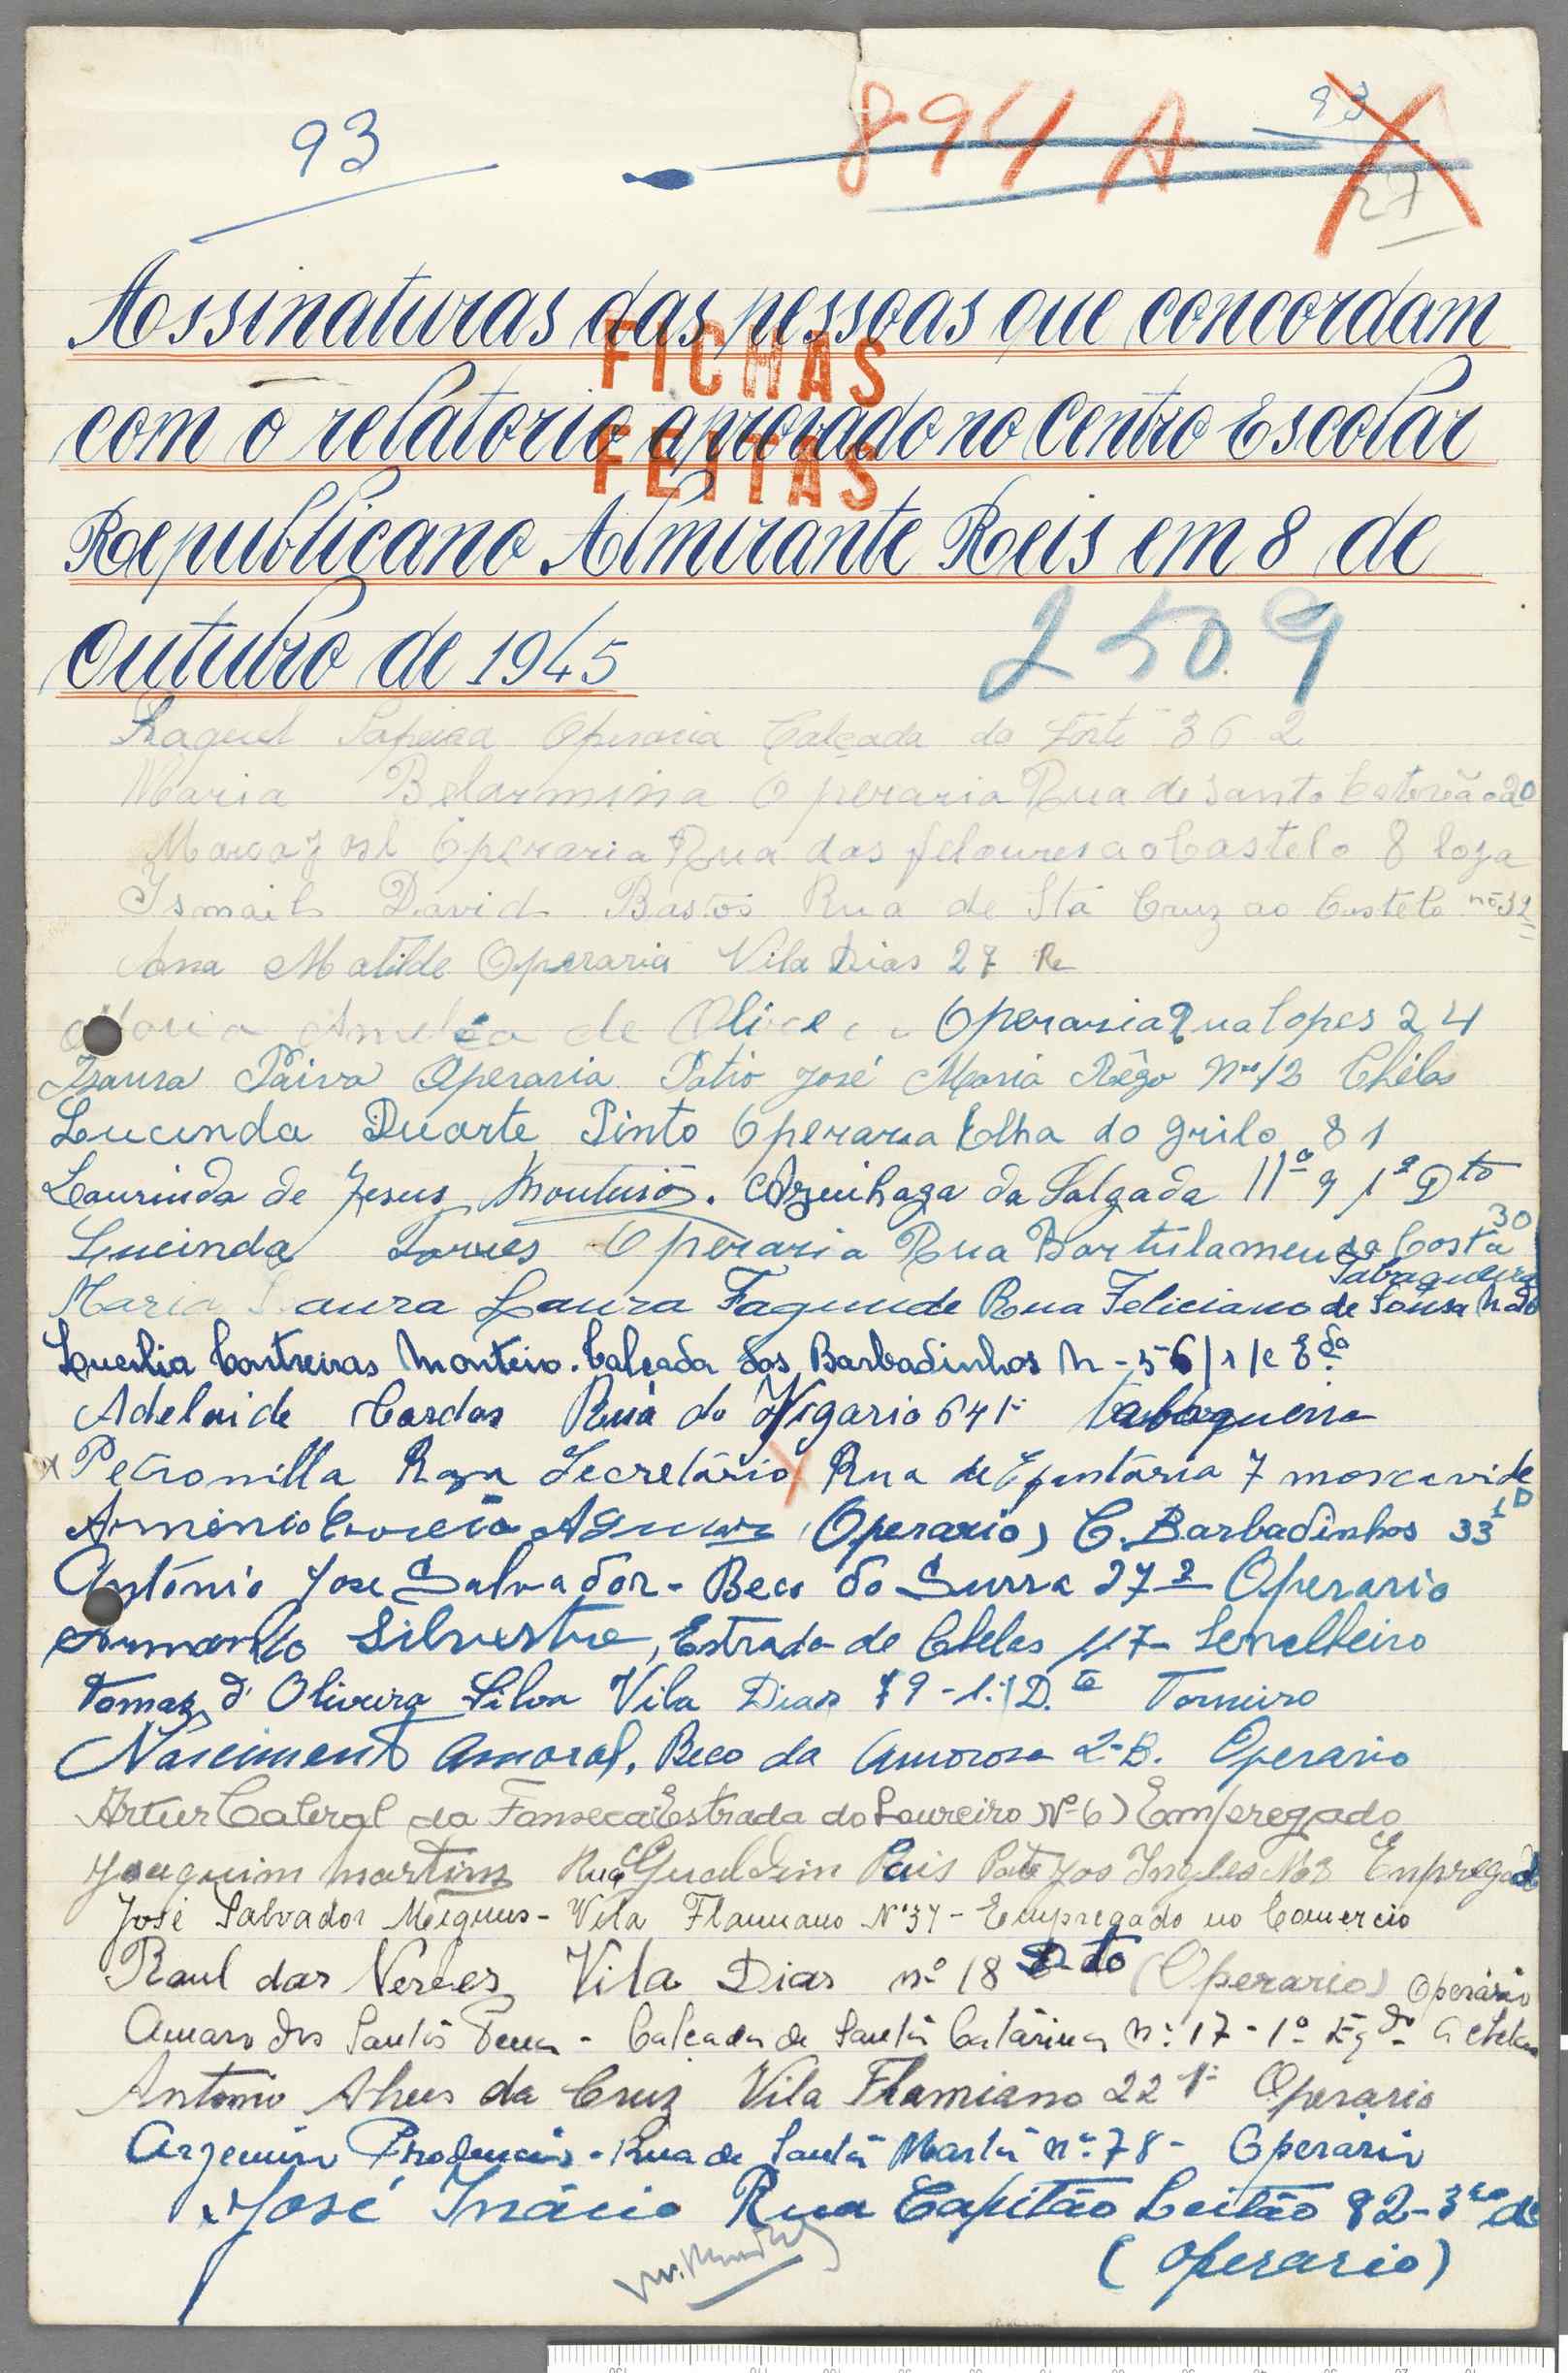 93
894 A
93
27
Assinaturas das pessoas que concordam
FICHAS
com o relatorio aprovado no Centro Escolar
FEITAS
Republicano Almirante Reis em 8 de
Outubro de 1945
2509
Raquel Operaria Calçada do Forte 36 2
Maria Belarmina Operaria Rua de Santo Estevão 20
José Operaria Rua das peloures ao Castelo 8 loja
Ismail David Bastos Rua de Stá Cruz ao Castelo nº 32
Ana Matilde Operaria Vila Dias 27 Rc
Maria Amelia de Operaria Rua lopes 24
Izaura Paiva Operaria Patio José Maria Rêgo nº 12 Chélas
Lucinda Duarte Pinto Operaria Elha do grilo 81
Laurinda de Jesus Azeinhaga da Salgada 11º 9 1º Dto
30
Lucinda Torres Operaria Rua Bartulameu da Costa
Tabaqueira
Maria aura Laura Fagunde Rua Feliciano de Sousa
Lucilia Contreiras Monteiro. Calçada dos Barbadinhos N - 56 r/c Edo
Adelaide Cardos Rua do Vigario 64 1º Tabaqueira
Petronilla Roza Secretário Rua de 7 moscavide
Armenio Correia (Operario) C. Barbadinhos 33 1D
António Jose Salvador - Beco do Surra 27 2 Operario
Armando Silvestre, Estrada de Chelas 117 - Serralheiro
Tomaz d' Oliveira Silva Vila Dias 79 - 1. D.to Torneiro
Nascimento Amaral, Beco da Amorosa 2-B. Operario
Artur Cabral da Fonseca (Estrada do Loureiro Nº 6) Empregado
Joaquim martins Rua Gualdim Pais Ingles Nº 8 Empregado
José Salvador - Vila Flamiano Nº 34 - Empregado no Comercio
Raul das Neves Vila Dias nº 18 Dto (Operario) Operário
Amaro dos Santos Pena - Calçada de Santa Catárina nº 17 - 1º Esqdo a chelas
Antonio Alves da Cruz Vila Flamiano 22 1º Operario
Argemiro Prudencio - Rua de Santa Marta nº 78 - Operario
José Inácio Rua Capitão Leitão 82 - 3º
(Operario)